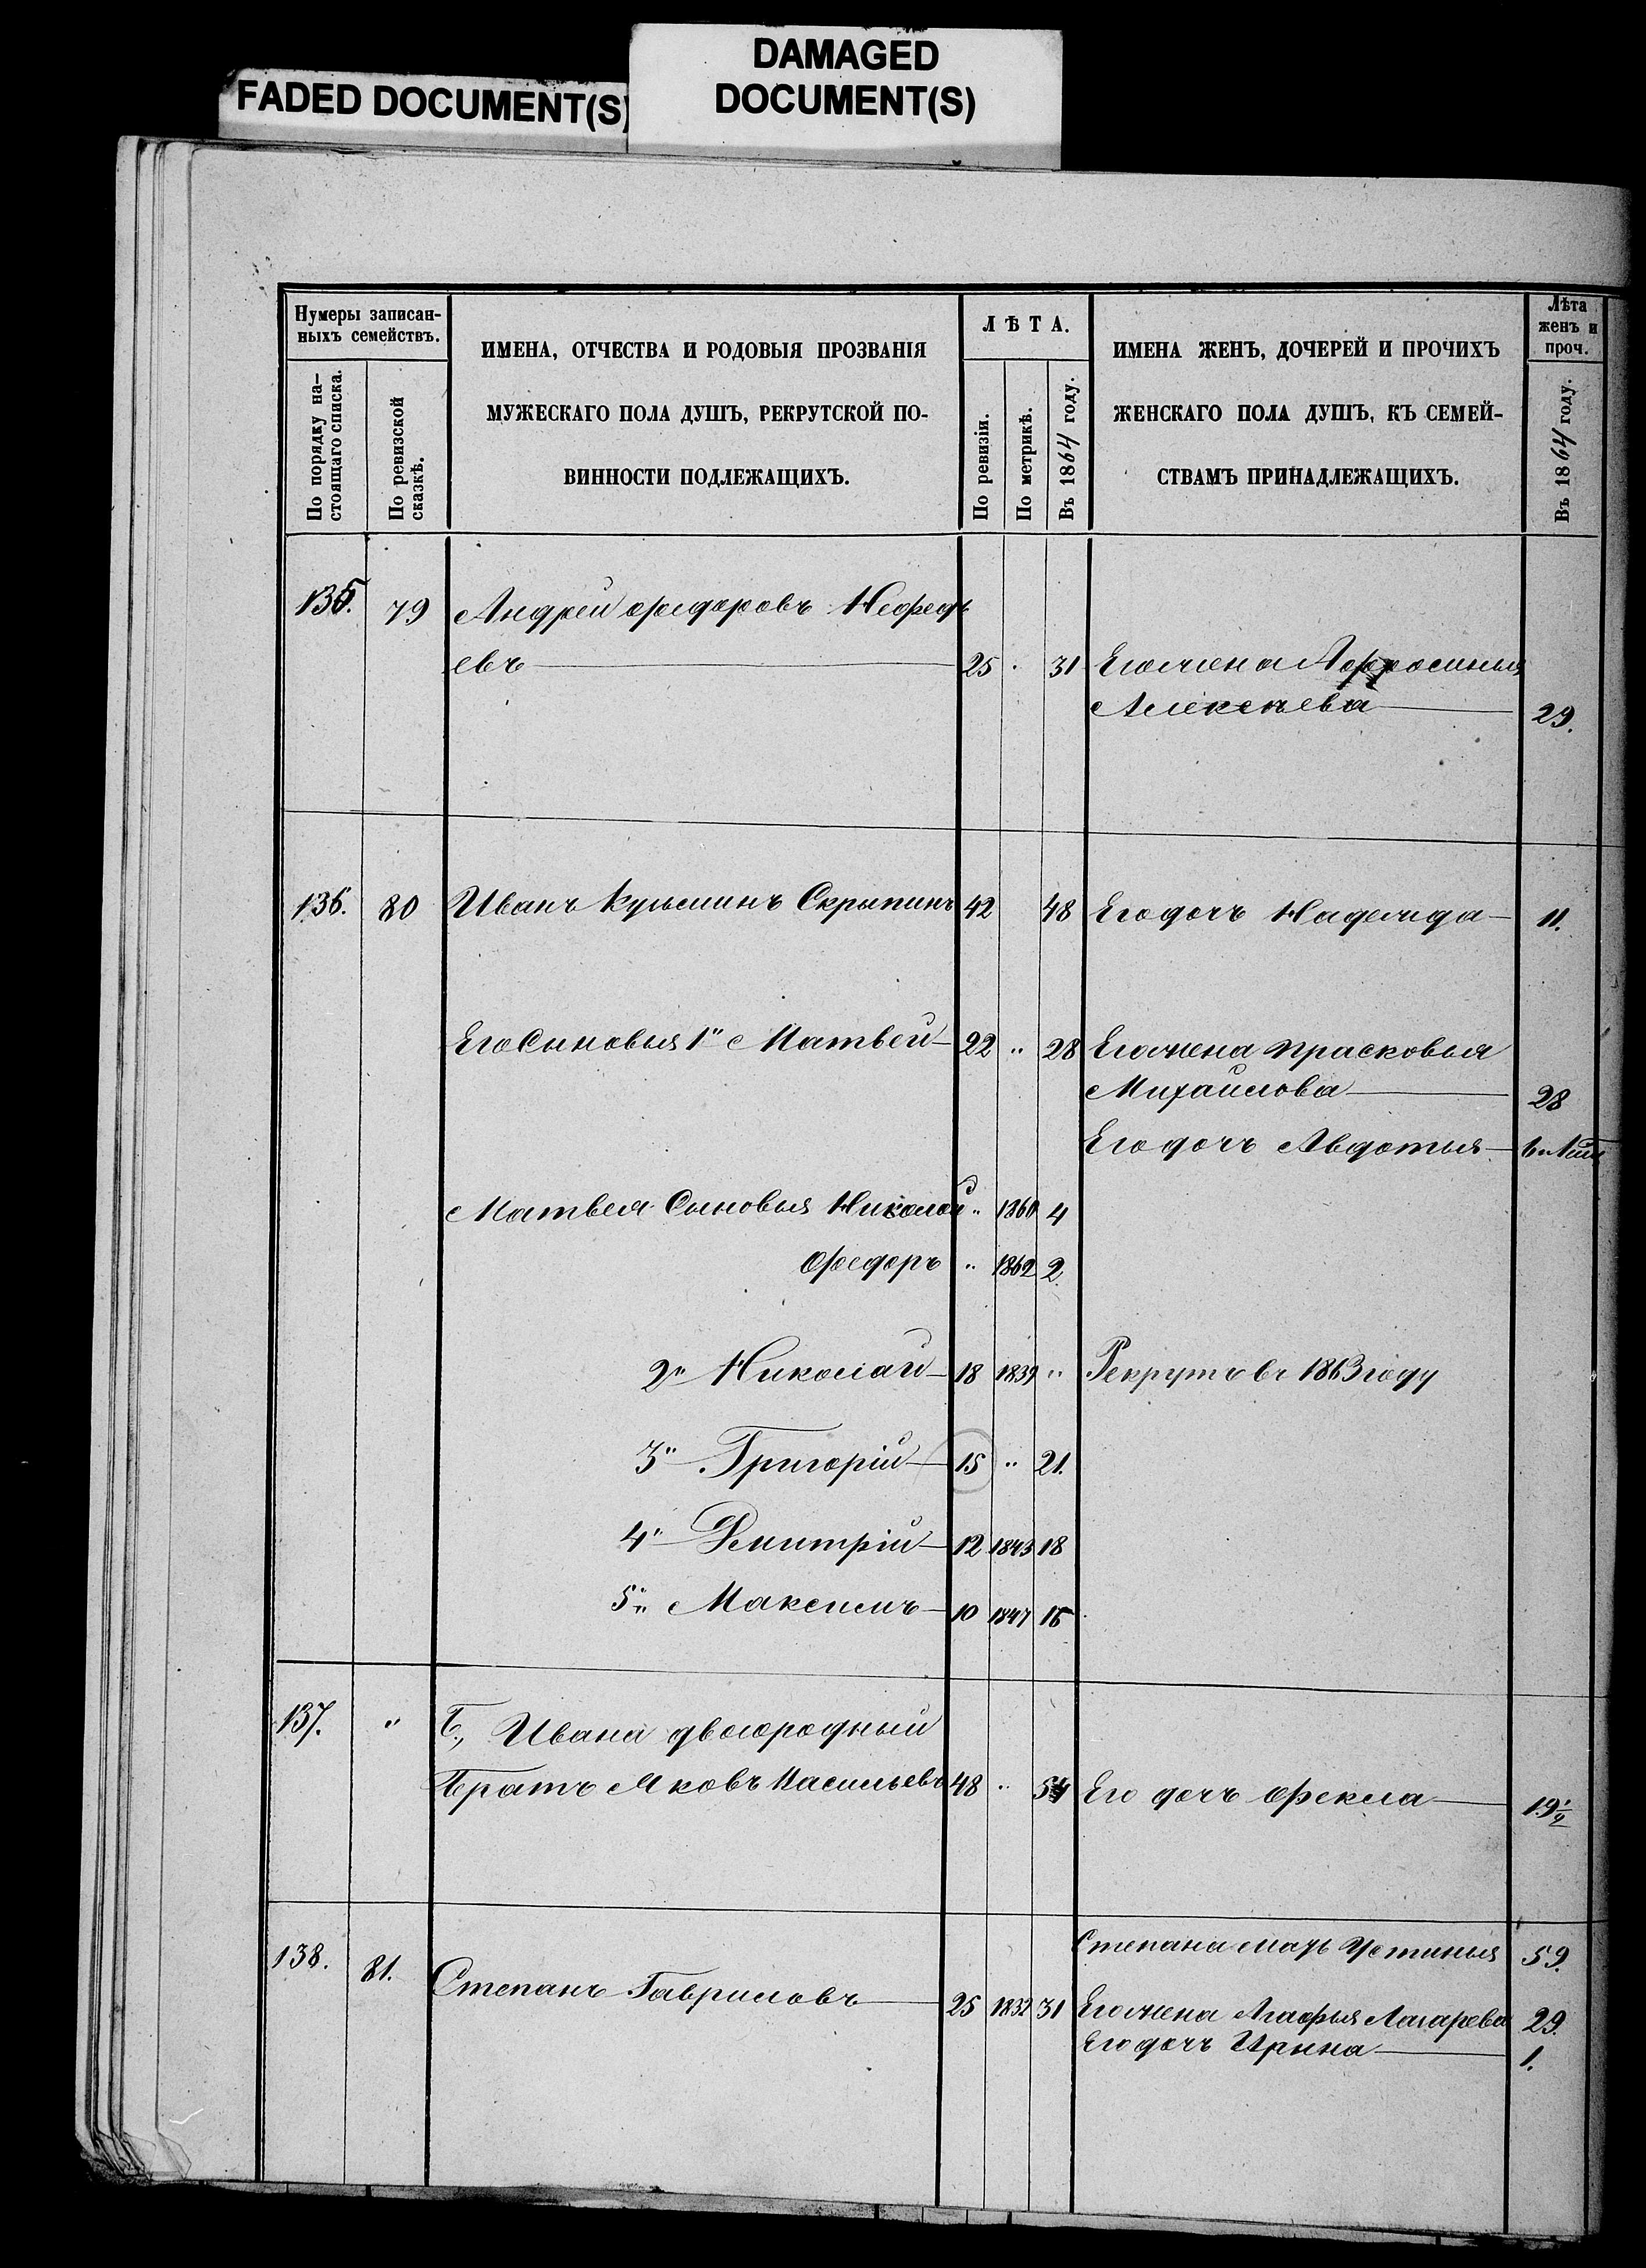 FADED DOCUMENT(S)
DAMAGED
DOCUMENT(S)
Нумеры записан-
ныхъ семействъ.
По порядку на-
стоящаго списка.
По ревизской
сказкѣ.
ИМЕНА, ОТЧЕСТВА И РОДОВЫЯ ПРОЗВАНІЯ
МУЖЕСКАГО ПОЛА ДУШЪ, РЕКРУТСКОЙ ПО-
ВИННОСТИ ПОДЛЕЖАЩИХЪ.
ЛѢТА.
По ревизіи.
По метрикѣ.
Въ 1864 году.
ИМЕНА ЖЕНЪ, ДОЧЕРЕЙ И ПРОЧИХЪ
ЖЕНСКАГО ПОЛА ДУШЪ, КЪ СЕМЕЙ-
СТВАМЪ ПРИНАДЛЕЖАЩИХЪ.
Лѣта
женъ и
проч.
Въ 1864 году.
135. 79 Андрей Федоровъ Нефедь
евъ 25 31 Его жена Афросинья
Алексѣева 29.
136. 80 Иванъ Кузьминъ Скрыпинъ 42 48 Его дочь Надежда 11.
Его Сыновья 1" Матвей 22 " 28 Его жена Прасковья
Михайлова 28
Его дочь Авдотья
Матвея Сыновья Николай " 1860 4
Федоръ " 1862 2.
2" Николай 18 1839 " Рекрутъ въ 1863 году
3" Григорій 15 " 21.
4" Дмитрій 12 1843 18
5" Максимъ 10 1847 16
137. " Б, Ивана двоюродный
Братъ Яковъ Васильевъ 48 " 54 Его дочь Фекла 19½
Степана мать Устинья 59.
138. 81. Степанъ Гавриловъ 25 1832 31 Его жена Агафья Лазарева 29.
Его дочь Ирина 1.